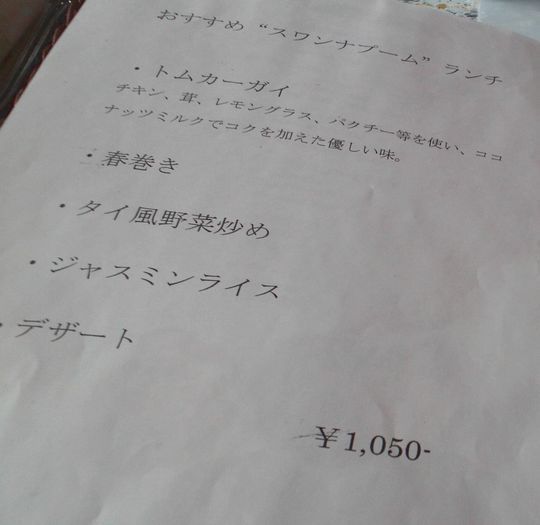 おすすめ“スワンナプーム”ランチ
・トムカーガイ
チキン、茸、レモングラス、パクチー等を使い、ココ
ナッツミルクでコクを加えた優しい味。
・春巻き
・タイ風野菜炒め
・ジャスミンライス
・デザート
￥1,050-